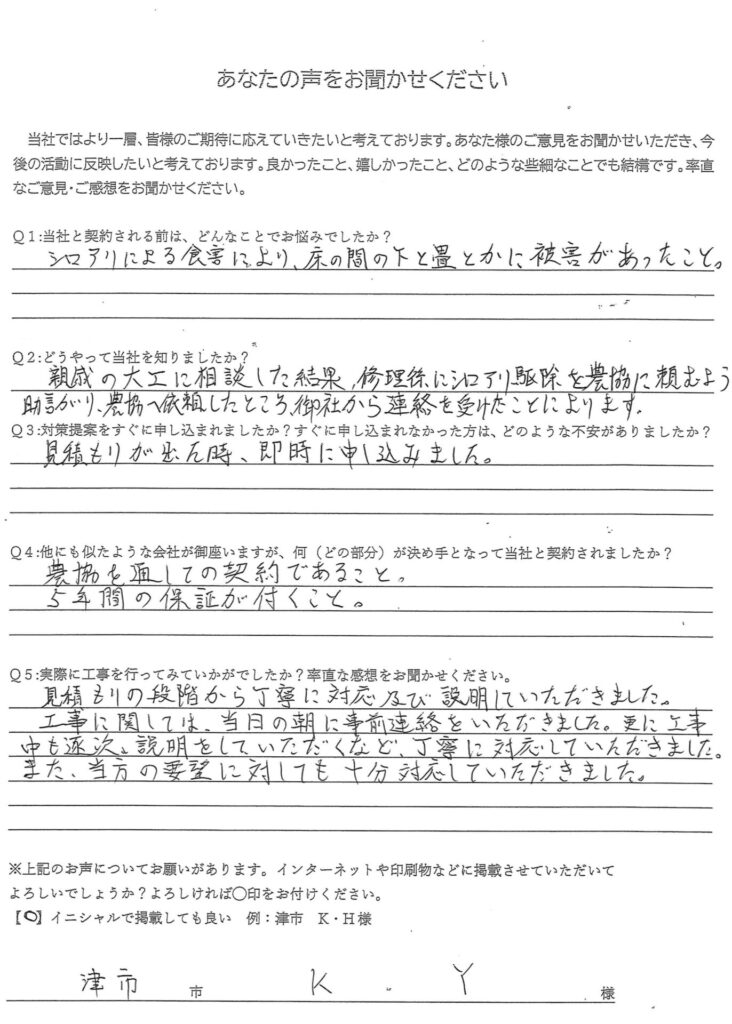 あなたの声をお聞かせください
当社ではより一層、皆様のご期待に応えていきたいと考えております。あなた様のご意見をお聞かせいただき、今
後の活動に反映したいと考えております。良かったこと、嬉しかったこと、どのような些細なことでも結構です。率直
なご意見・ご感想をお聞かせください。
Q1:当社と契約される前は、どんなことでお悩みでしたか?
シロアリによる食害により、床の間の下と畳とかに被害があったこと。
Q2:どうやって当社を知りましたか?
親戚の大工に相談した結果、修理後にシロアリ駆除を農協に頼むよう
助言があり、農協へ依頼したところ、御社から連絡を受けたことによります。
Q3:対策提案をすぐに申し込まれましたか?すぐに申し込まれなかった方は、どのような不安がありましたか?
見積もりが出た時、即時に申し込みました。
Q4:他にも似たような会社が御座いますが、何(どの部分)が決め手となって当社と契約されましたか?
農協を通しての契約であること。
5年間の保証が付くこと。
Q5:実際に工事を行ってみていかがでしたか?率直な感想をお聞かせください。
見積もりの段階から丁寧に対応及び説明していただきました。
工事に関しては、当日の朝に事前連絡をいただきました。更に工事
中も逐次、説明をしていただくなど、丁寧に対応していただきました。
また、当方の要望に対しても十分対応していただきました。
※上記のお声についてお願いがあります。インターネットや印刷物などに掲載させていただいて
よろしいでしょうか?よろしければ〇印をお付けください。
【〇】イニシャルで掲載しても良い 例:津市 K・H様
津市 市 K . Y 様